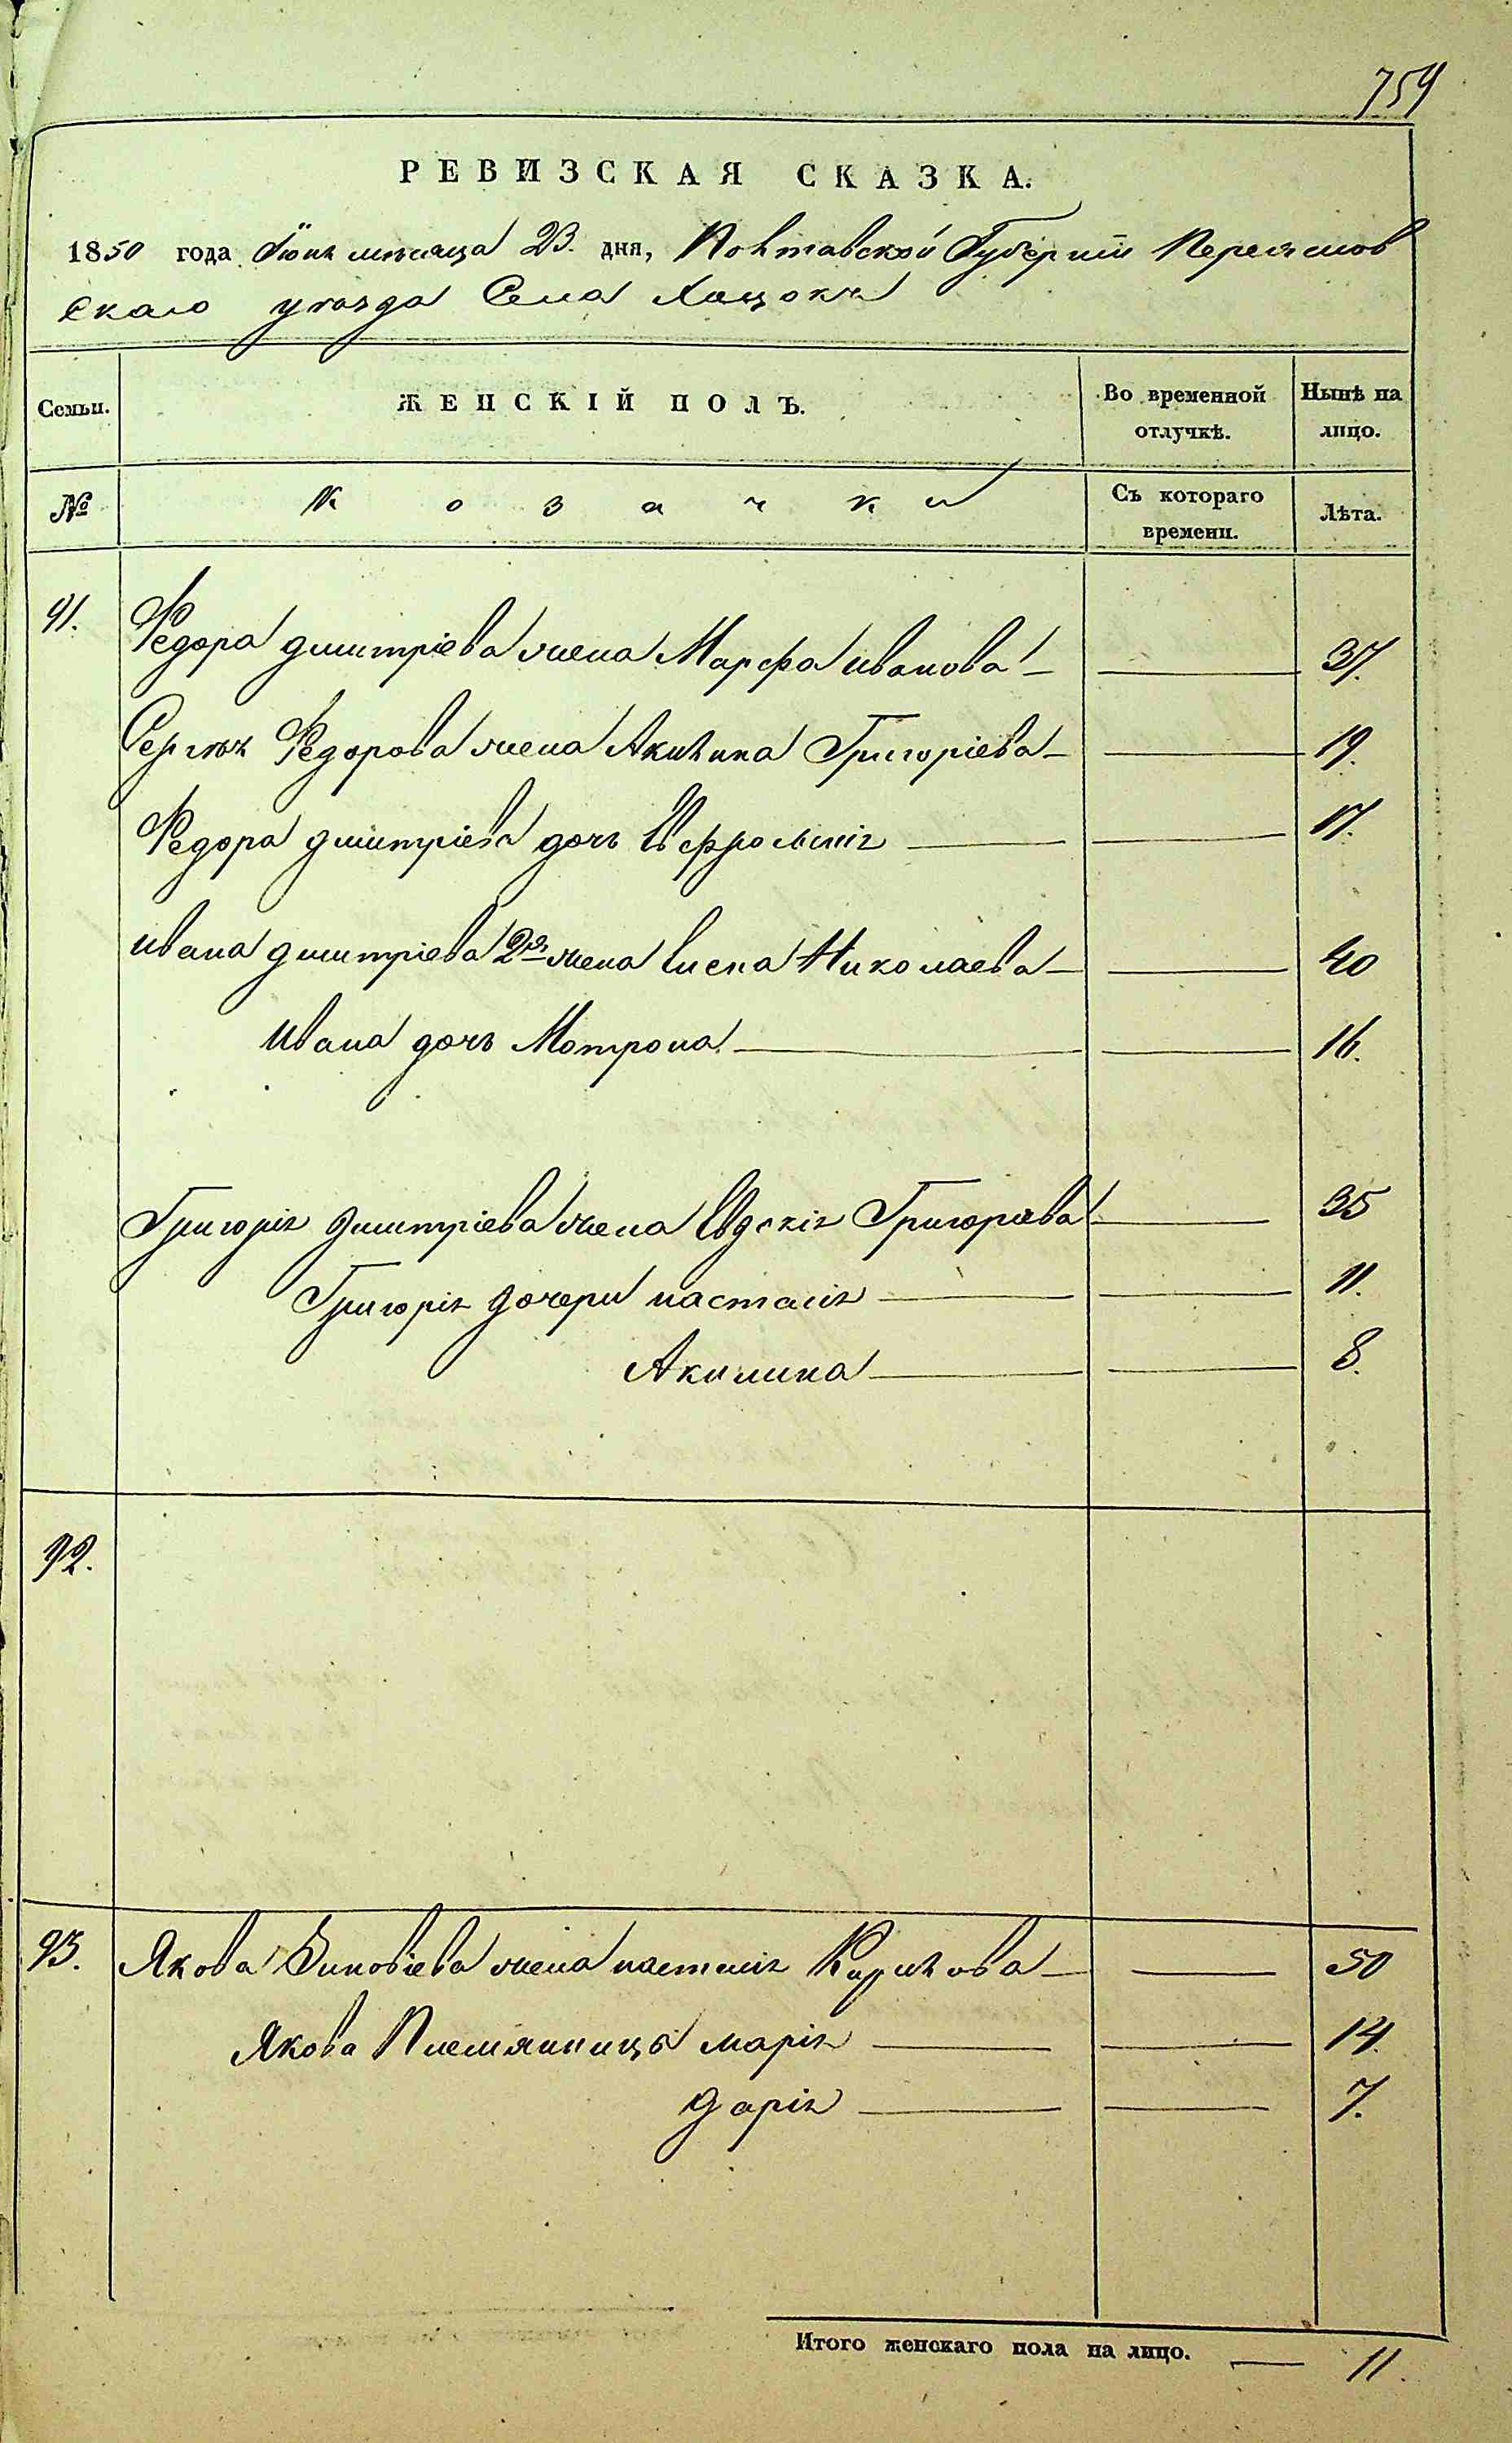 759
РЕВИЗСКАЯ СКАЗКА.
1850 года Іюня мѣсяца 23. дня, Полтавской Губерніи Переяслов
скаго уѣзда Села Хоцокъ
Семьи. ЖЕНСКІЙ ПОЛЪ. Во временной отлучкѣ. Нынѣ на лицо.
№ Козачки Съ котораго времени. Лѣта.
91. Федора дмитріева жена Марфа иванова — 37.
Сергѣя Федорова жена Акилина Григоріева — 19.
Федора дмитріева дочь Евфросинія — 17.
ивана дмитріева 2я жена Елена Николаева — 40
Ивана дочь Мотрона — 16.
Григорія дмитріева жена Евдокія Григоріева — 35
Григорія дочери настасія — 11.
Акилина — 8.
92.
93. Якова Зиновіева жена настасія — 50
Якова Племянницы марія — 14.
дарія — 7.
Итого женскаго пола на лицо. — 11.